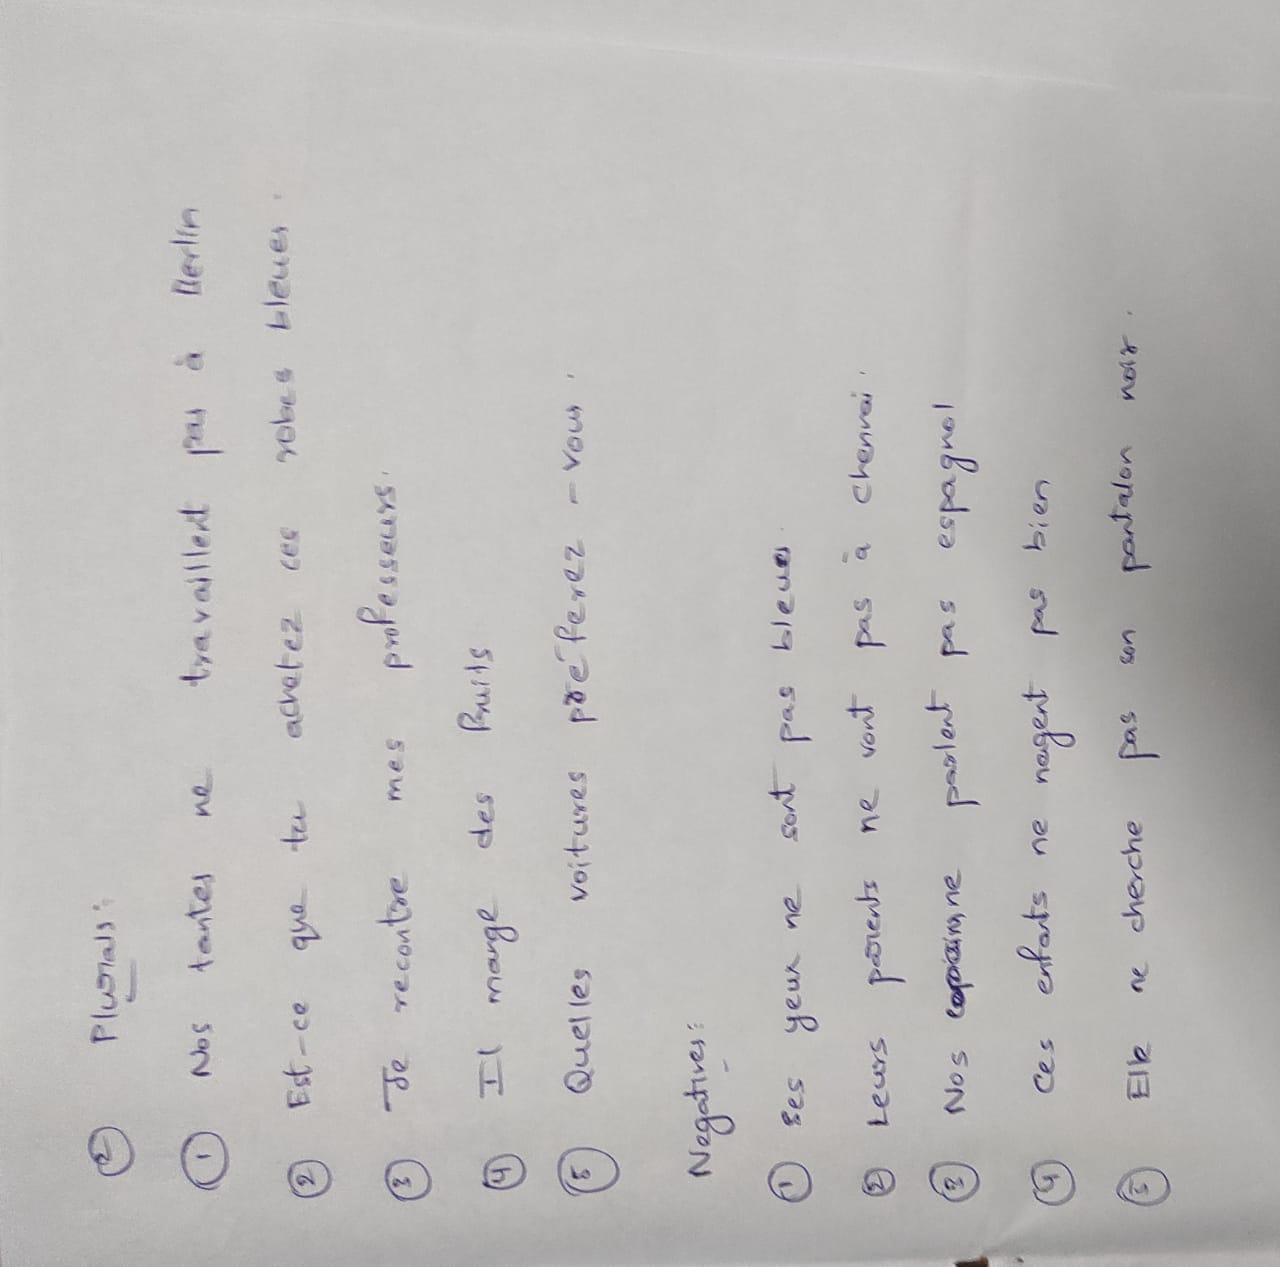 ② Plurals:
① Nos tantes ne travaillent pas à Berlin
② Est-ce que tu achetez ces robes bleues.
③ Je recontre mes professeurs.
④ Il mange des fruits
⑤ Quelles voitures préferez - vous.
Negatives:
① Ses yeux ne sont pas bleues.
② Leurs parents ne vont pas à chennai.
③ Nos ne parlent pas espagnol
④ Ces enfants ne nagent pas bien
⑤ Elle ne cherche pas son pantalon noir.